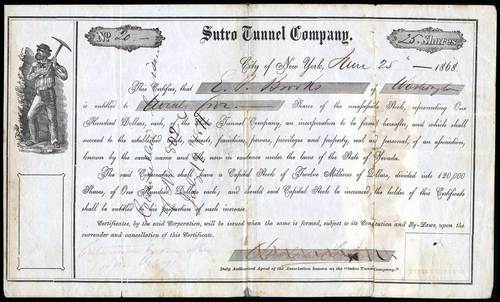 No. 20
Sutro Tunnel Company.
25 Shares
City of New York, June 25 1868
This Certifies, that E. S. Brooks of
is entitled to twenty five Shares of the unassessable Stock, representing One
Hundred Dollars, each, of the Sutro Tunnel Company, an incorporation to be formed hereafter, and which shall
succeed to the established rights, franchises, powers, privileges and property, real and personal, of an association,
known by the same name and style, now in existence under the laws of the State of Nevada.
The said Corporation shall have a Capital Stock of Twelve Millions of Dollars, divided into 120,000
Shares, of One Hundred Dollars each; and should said Capital Stock be increased, the holder of this Certificate
shall be entitled to his proportion of such increase.
Certificates, by the said Corporation, will be issued when the same is formed, subject to its Constitution and By-Laws, upon the
surrender and cancellation of this Certificate.
Duly Authorized Agent of the Association known as the "Sutro Tunnel Company."